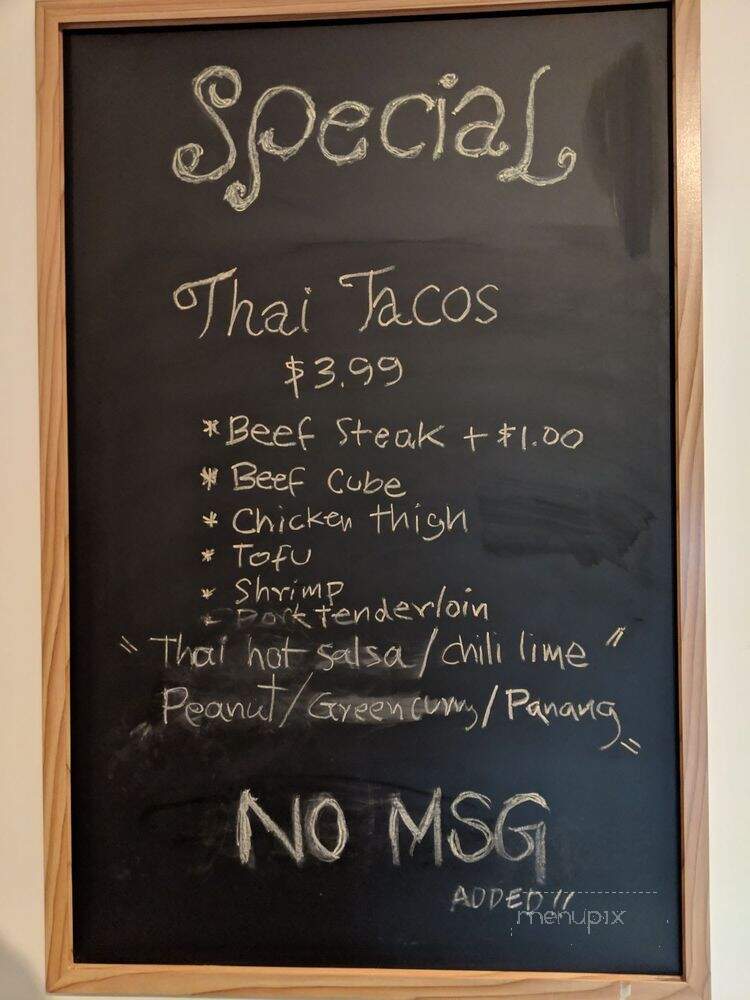 Special
Thai Tacos
$3.99
* Beef Steak + $1.00
* Beef Cube
* Chicken thigh
* Tofu
* Shrimp
* Pork tenderloin
" Thai hot salsa / chili lime "
" Peanut / Green curry / Panang "
NO MSG
ADDED !!
menupix